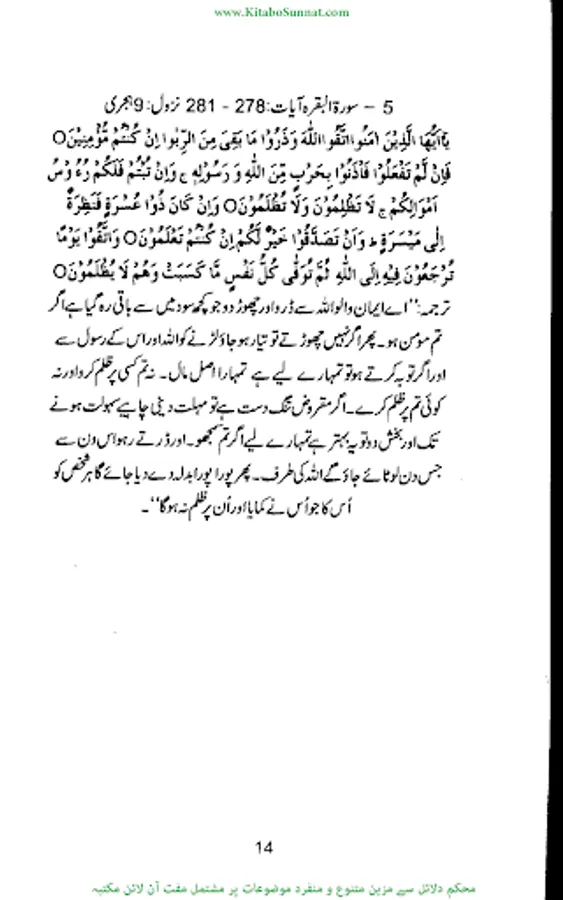 www.KitaboSunnat.com
5 - سورۃ البقرہ آیات: 278 - 281 نزول: 9 ہجری
يٰٓاَيُّهَا الَّذِيْنَ اٰمَنُوا اتَّقُوا اللّٰهَ وَ ذَرُوْا مَا بَقِىَ مِنَ الرِّبٰوا اِنْ كُنْتُمْ مُّؤْمِنِيْنَ ○
فَاِنْ لَّمْ تَفْعَلُوْا فَاْذَنُوْا بِحَرْبٍ مِّنَ اللّٰهِ وَ رَسُوْلِهٖ ج وَاِنْ تُبْتُمْ فَلَكُمْ رُءُ وْسُ
اَمْوَالِكُمْ ج لَا تَظْلِمُوْنَ وَلَا تُظْلَمُوْنَ ○ وَاِنْ كَانَ ذُوْا عُسْرَةٍ فَنَظِرَةٌ
اِلٰى مَيْسَرَةٍ ط وَ اَنْ تَصَدَّقُوْا خَيْرٌ لَّكُمْ اِنْ كُنْتُمْ تَعْلَمُوْنَ ○ وَاتَّقُوْا يَوْمًا
تُرْجَعُوْنَ فِيْهِ اِلَى اللّٰهِ ثُمَّ تُوَفّٰى كُلُّ نَفْسٍ مَّا كَسَبَتْ وَهُمْ لَا يُظْلَمُوْنَ ○
ترجمہ: ’’اے ایمان والو اللہ سے ڈرو اور چھوڑ دو جو کچھ سود میں سے باقی رہ گیا ہے اگر
تم مومن ہو۔ پھر اگر نہیں چھوڑتے تو تیار ہو جاؤ لڑنے کو اللہ اور اس کے رسول سے
اور اگر توبہ کرتے ہو تو تمہارے لیے ہے تمہارا اصل مال۔ نہ تم کسی پر ظلم کرو اور نہ
کوئی تم پر ظلم کرے۔ اگر مقروض تنگ دست ہے تو مہلت دینی چاہیے سہولت ہونے
تک اور بخش دو تو یہ بہتر ہے تمہارے لیے اگر تم سمجھو۔ اور ڈرتے رہو اس دن سے
جس دن لوٹائے جاؤ گے اللہ کی طرف۔ پھر پورا پورا بدلہ دے دیا جائے گا ہر شخص کو
اُس کا جو اُس نے کمایا اور اُن پر ظلم نہ ہو گا‘‘۔
14
محکم دلائل سے مزین متنوع و منفرد موضوعات پر مشتمل مفت آن لائن مکتبہ